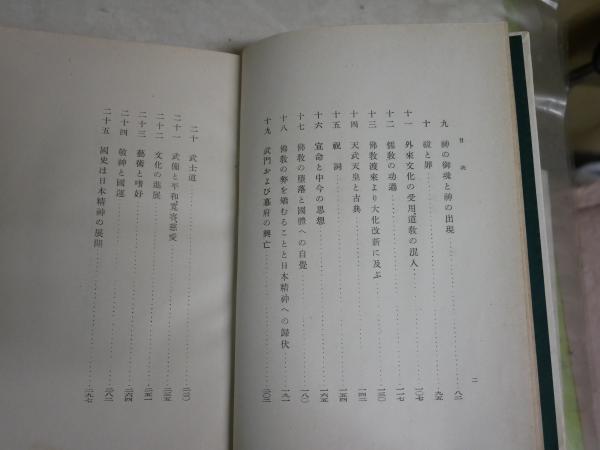 目次
二
九 神の御魂と神の出現 八三
十 祓と罪 九五
十一 外來文化の受用、道敎の混入 一〇七
十二 儒敎の功過 一一七
十三 佛敎渡來より大化改新に及ぶ 一三〇
十四 天武天皇と古典 一四二
十五 祝詞 一五四
十六 宣命と中今の思想 一六五
十七 佛敎の墮落と國體への自覺 一八〇
十八 佛敎の弊を矯むることと日本精神への歸伏 一九一
十九 武門および幕府の興亡 二〇三
二十 武士道 二二〇
二十一 武備と平和、寬容、慈愛 二三五
二十二 文化の進展 二五一
二十三 藝術と嗜好 二六四
二十四 敬神と國運 二八二
二十五 國史は日本精神の展開 二九七